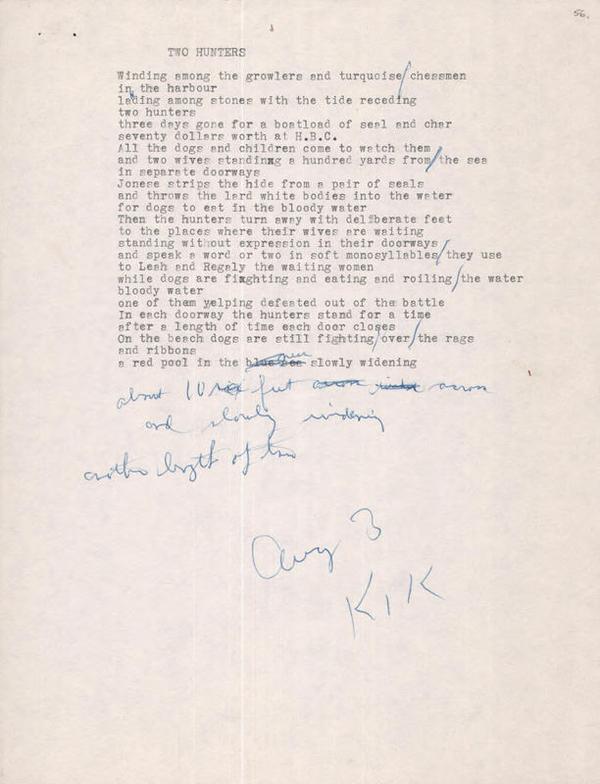 56.
TWO HUNTERS
Winding among the growlers and turquoise/chessmen
in the harbour
lading among stones with the tide receding
two hunters
three days gone for a boatload of seal and char
seventy dollars worth at H.B.C.
All the dogs and children come to watch them
and two wives standinxg a hundred yards from/the sea
in separate doorways
Jonese strips the hide from a pair of seals
and throws the lard white bodies into the water
for dogs to eat in the bloody water
Then the hunters turn away with deliberate feet
to the places where their wives are waiting
standing without expression in their doorways/
and speak a word or two in soft monosyllables/they use
to Leah and Regaly the waiting women
while dogs are fixghting and eating and roiling/the water
bloody water
one of them yelping defeated out of the battle
In each doorway the hunters stand for a time
after a length of time each door closes
On the beach dogs are still fighting/over/the rags
and ribbons
a red pool in the blue sea slowly widening
about 10 feet across
and slowly widening
another length of time
Aug 3
KIK